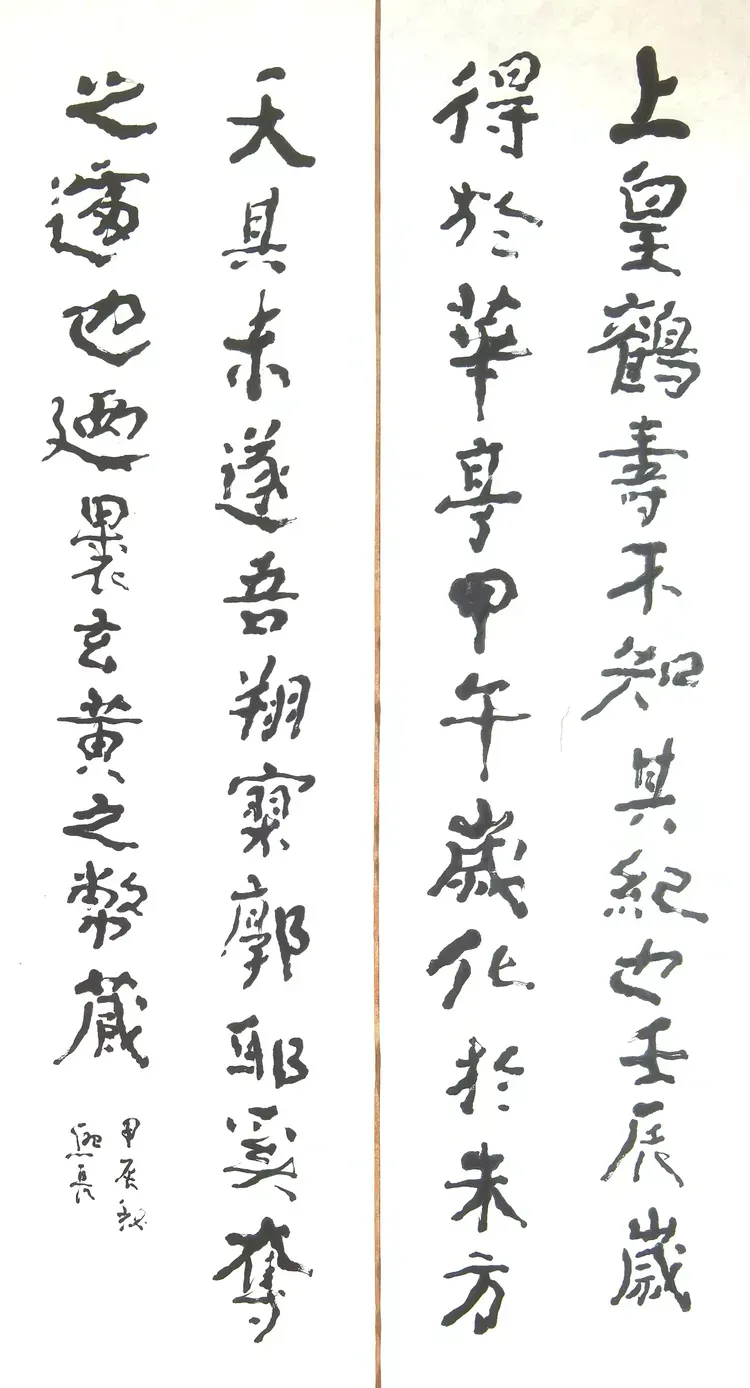 上皇鶴壽不知其紀也壬辰歲
得於華亭甲午歲化於朱方
天其未遂吾翔寥廓耶奚奪
之遽也廼裹玄黄之幣藏
甲辰秋